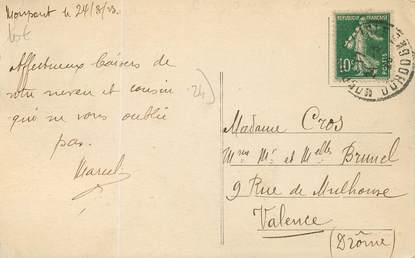 Monpont le 24/8/23.
Affectueux baisers de
votre neveu et cousin
qui ne vous oublie
pas.
Marcel
24
REPUBLIQUE FRANÇAISE
10c
POSTES
Madame Cros
Mme Mr et Melle Brunel
9 Rue de Mulhouse
Valence
(Drôme)